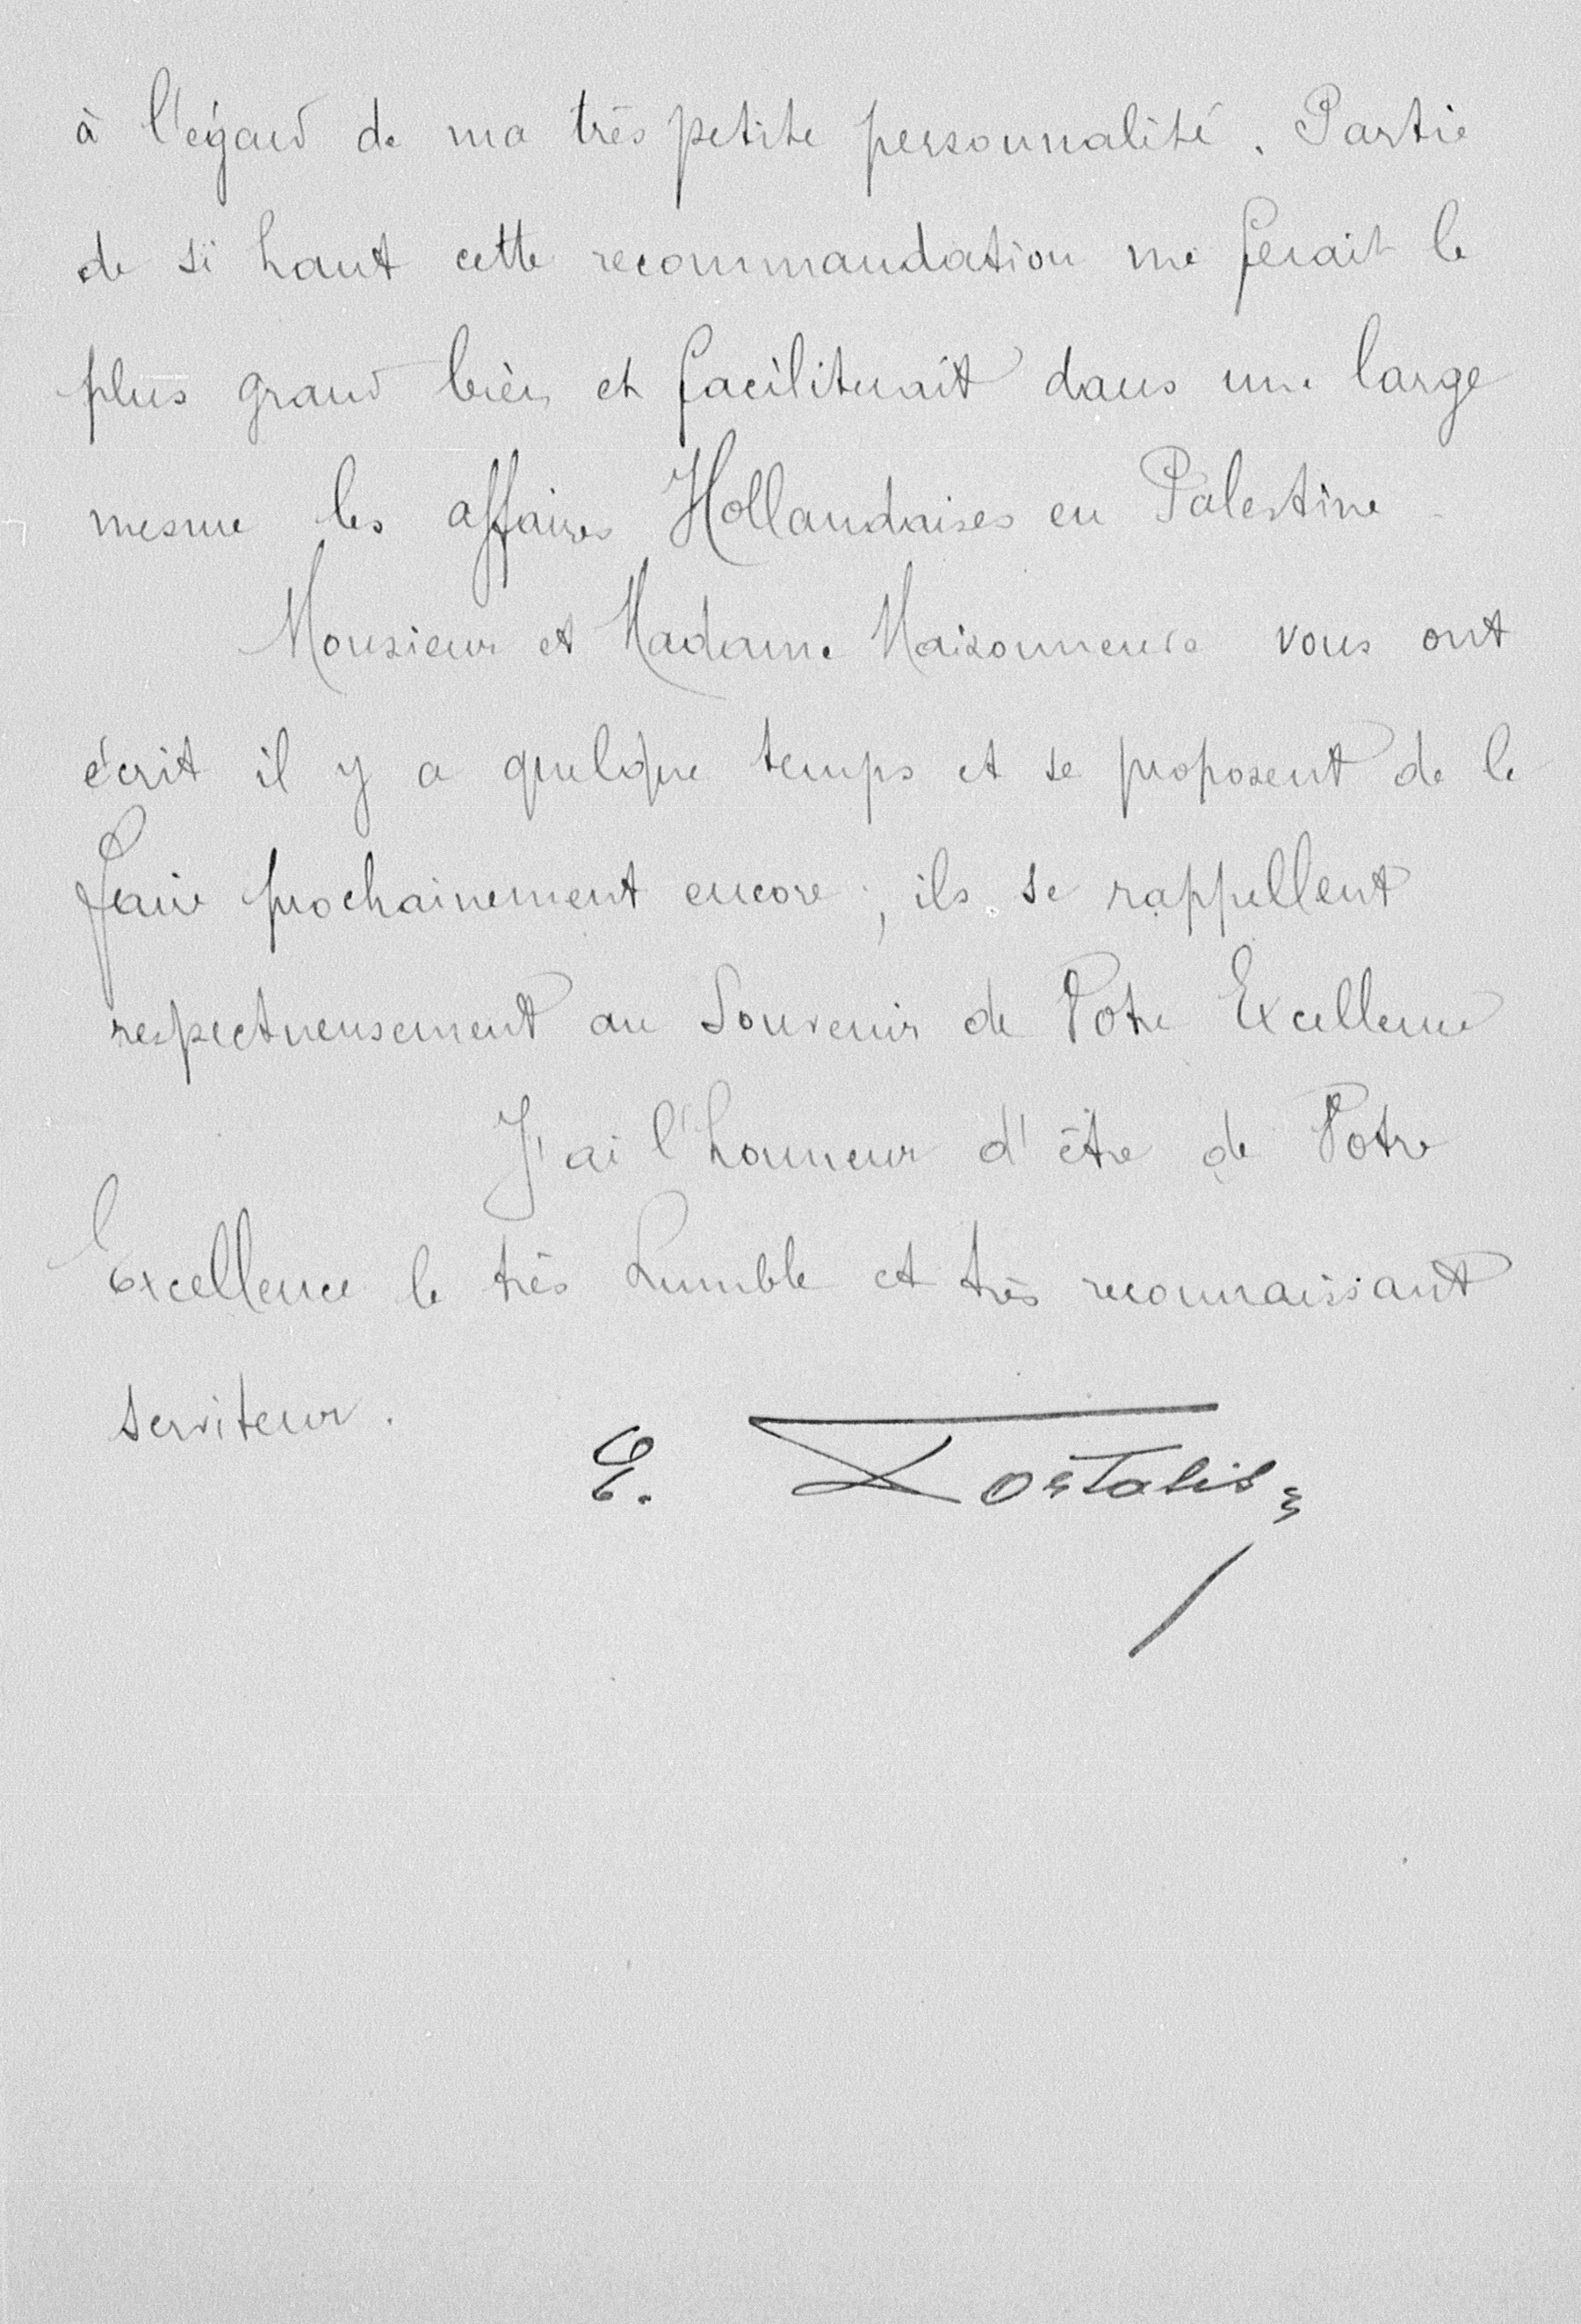 à l'égard de ma très petite personnalité. Partie
de si haut cette recommandation me ferait le
plus grand bien et faciliterait dans une large
mesure les affaires Hollandaises en Palestine
Monsieur et Madame Maisonneuve vous ont
écrit il y a quelque temps et se proposent de le
faire prochainement encore ; ils se rappellent
respectueusement au Souvenir de Votre Excellence
J'ai l'honneur d'être de Votre
Excellence le très humble et très reconnaissant
serviteur.
E. Portalis